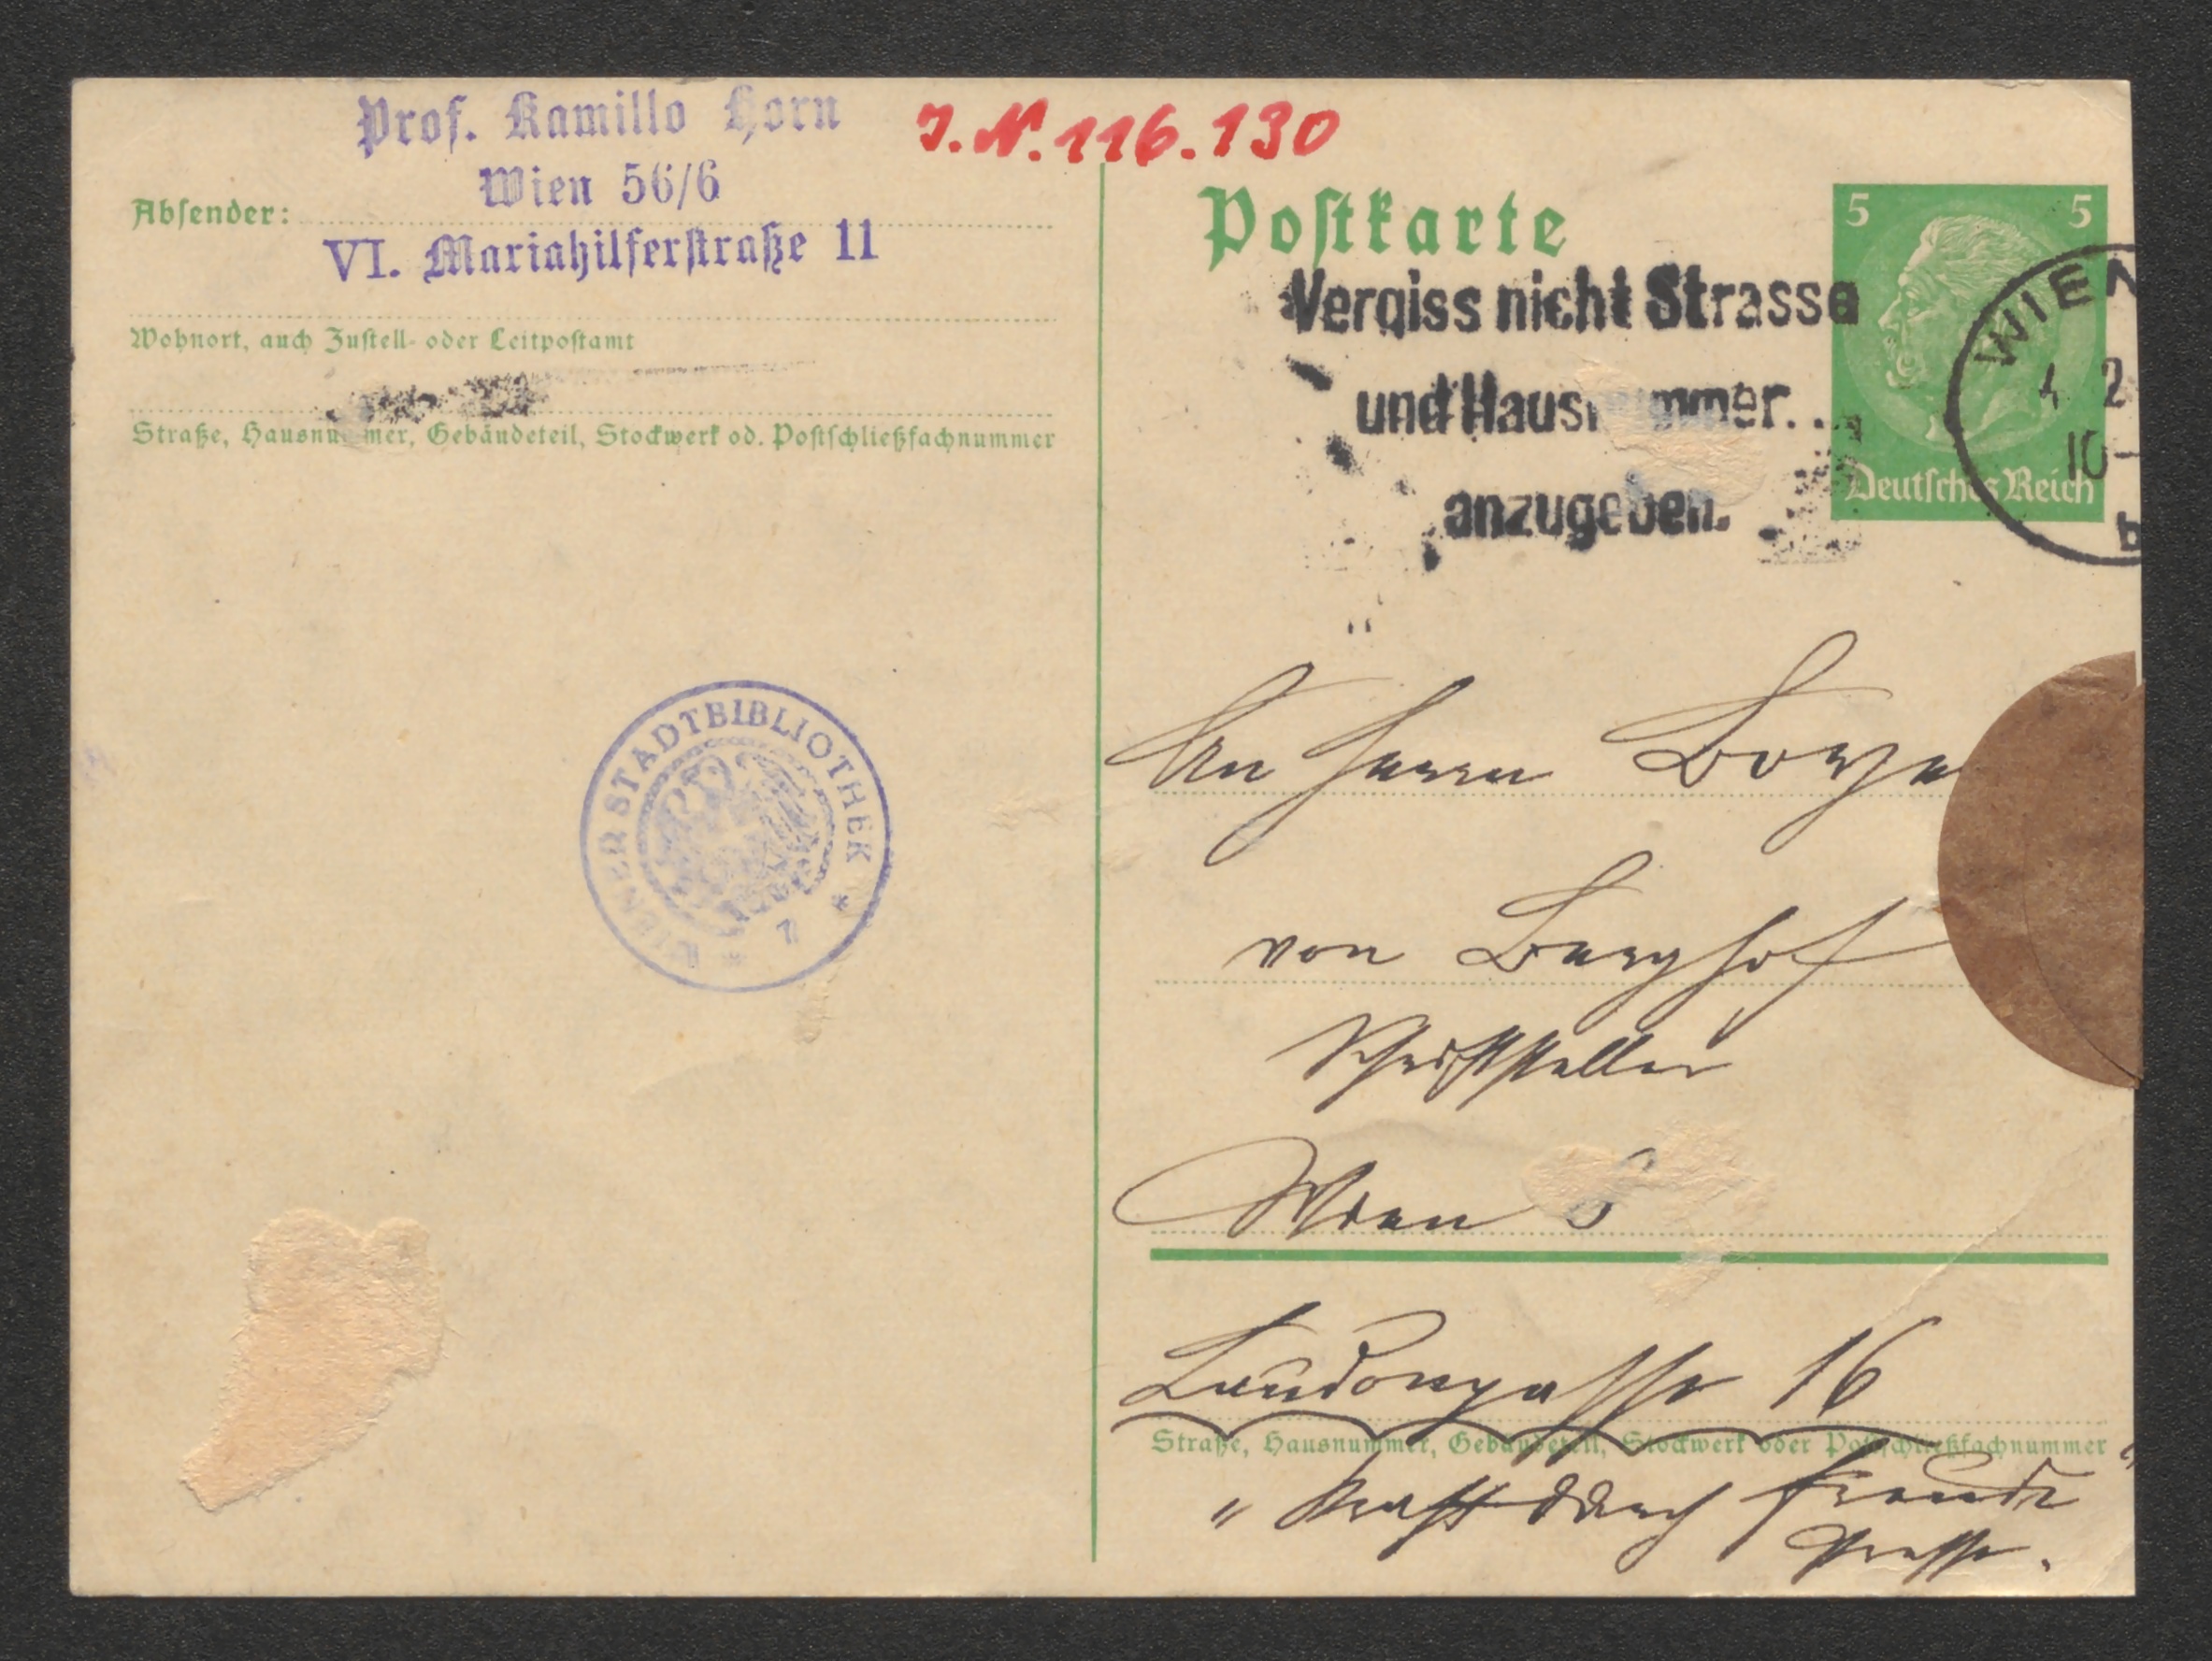 Prof. Kamillo Horn
Wien 56/6
Absender:
VI. Mariahilferstraße 11
Wohnort, auch Zustell- oder Leitpostamt
Straße, Hausnummer, Gebäudeteil, Stockwerk od. Postschließfachnummer
WIENER STADTBIBLIOTHEK
J.N. 116.130
Postkarte
5 5
Deutsches Reich
Vergiss nicht Strasse
und Hausnummer...
anzugeben.
WIEN
10-
b
An Herrn
von Burghof
Schriftsteller
Wien
Laudongasse 16
Straße, Hausnummer, Gebäudeteil, Stockwerk oder Postschließfachnummer
"Kraft durch Freude"
Presse.